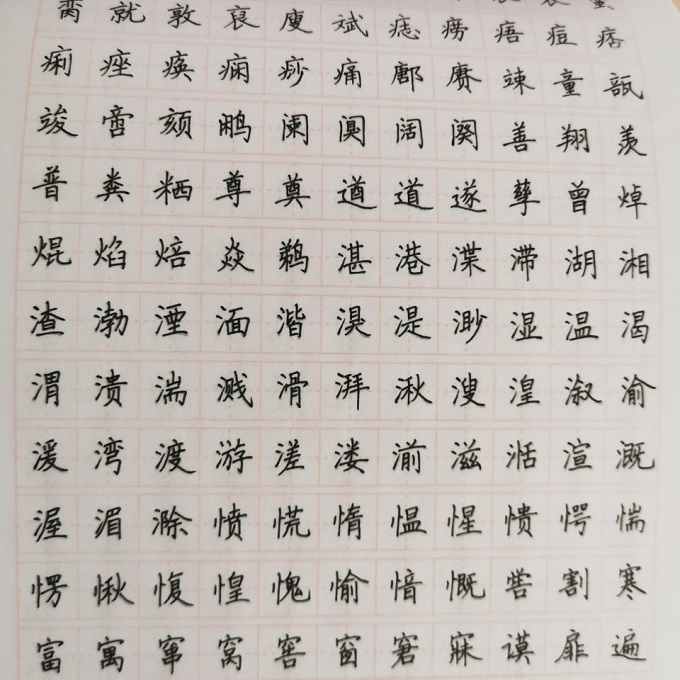 脔就敦裒廋斌痣痨痦痘痞
痢痤痪痫痧痛鄌赓竦童瓿
竣啻颏鹇阑阒阔阕善翔羡
普粪粞尊奠遒道遂孳曾焯
焜焰焙焱鹈湛港渫滞湖湘
渣渤湮湎湝湨湜渺湿温渴
渭溃湍溅滑湃湫溲湟溆渝
湲湾渡游溠溇湔滋湉渲溉
渥湄滁愤慌惰愠惺愦愕惴
愣愀愎惶愧愉愔慨喾割寒
富寓窜窝窖窗窘寐谟扉遍